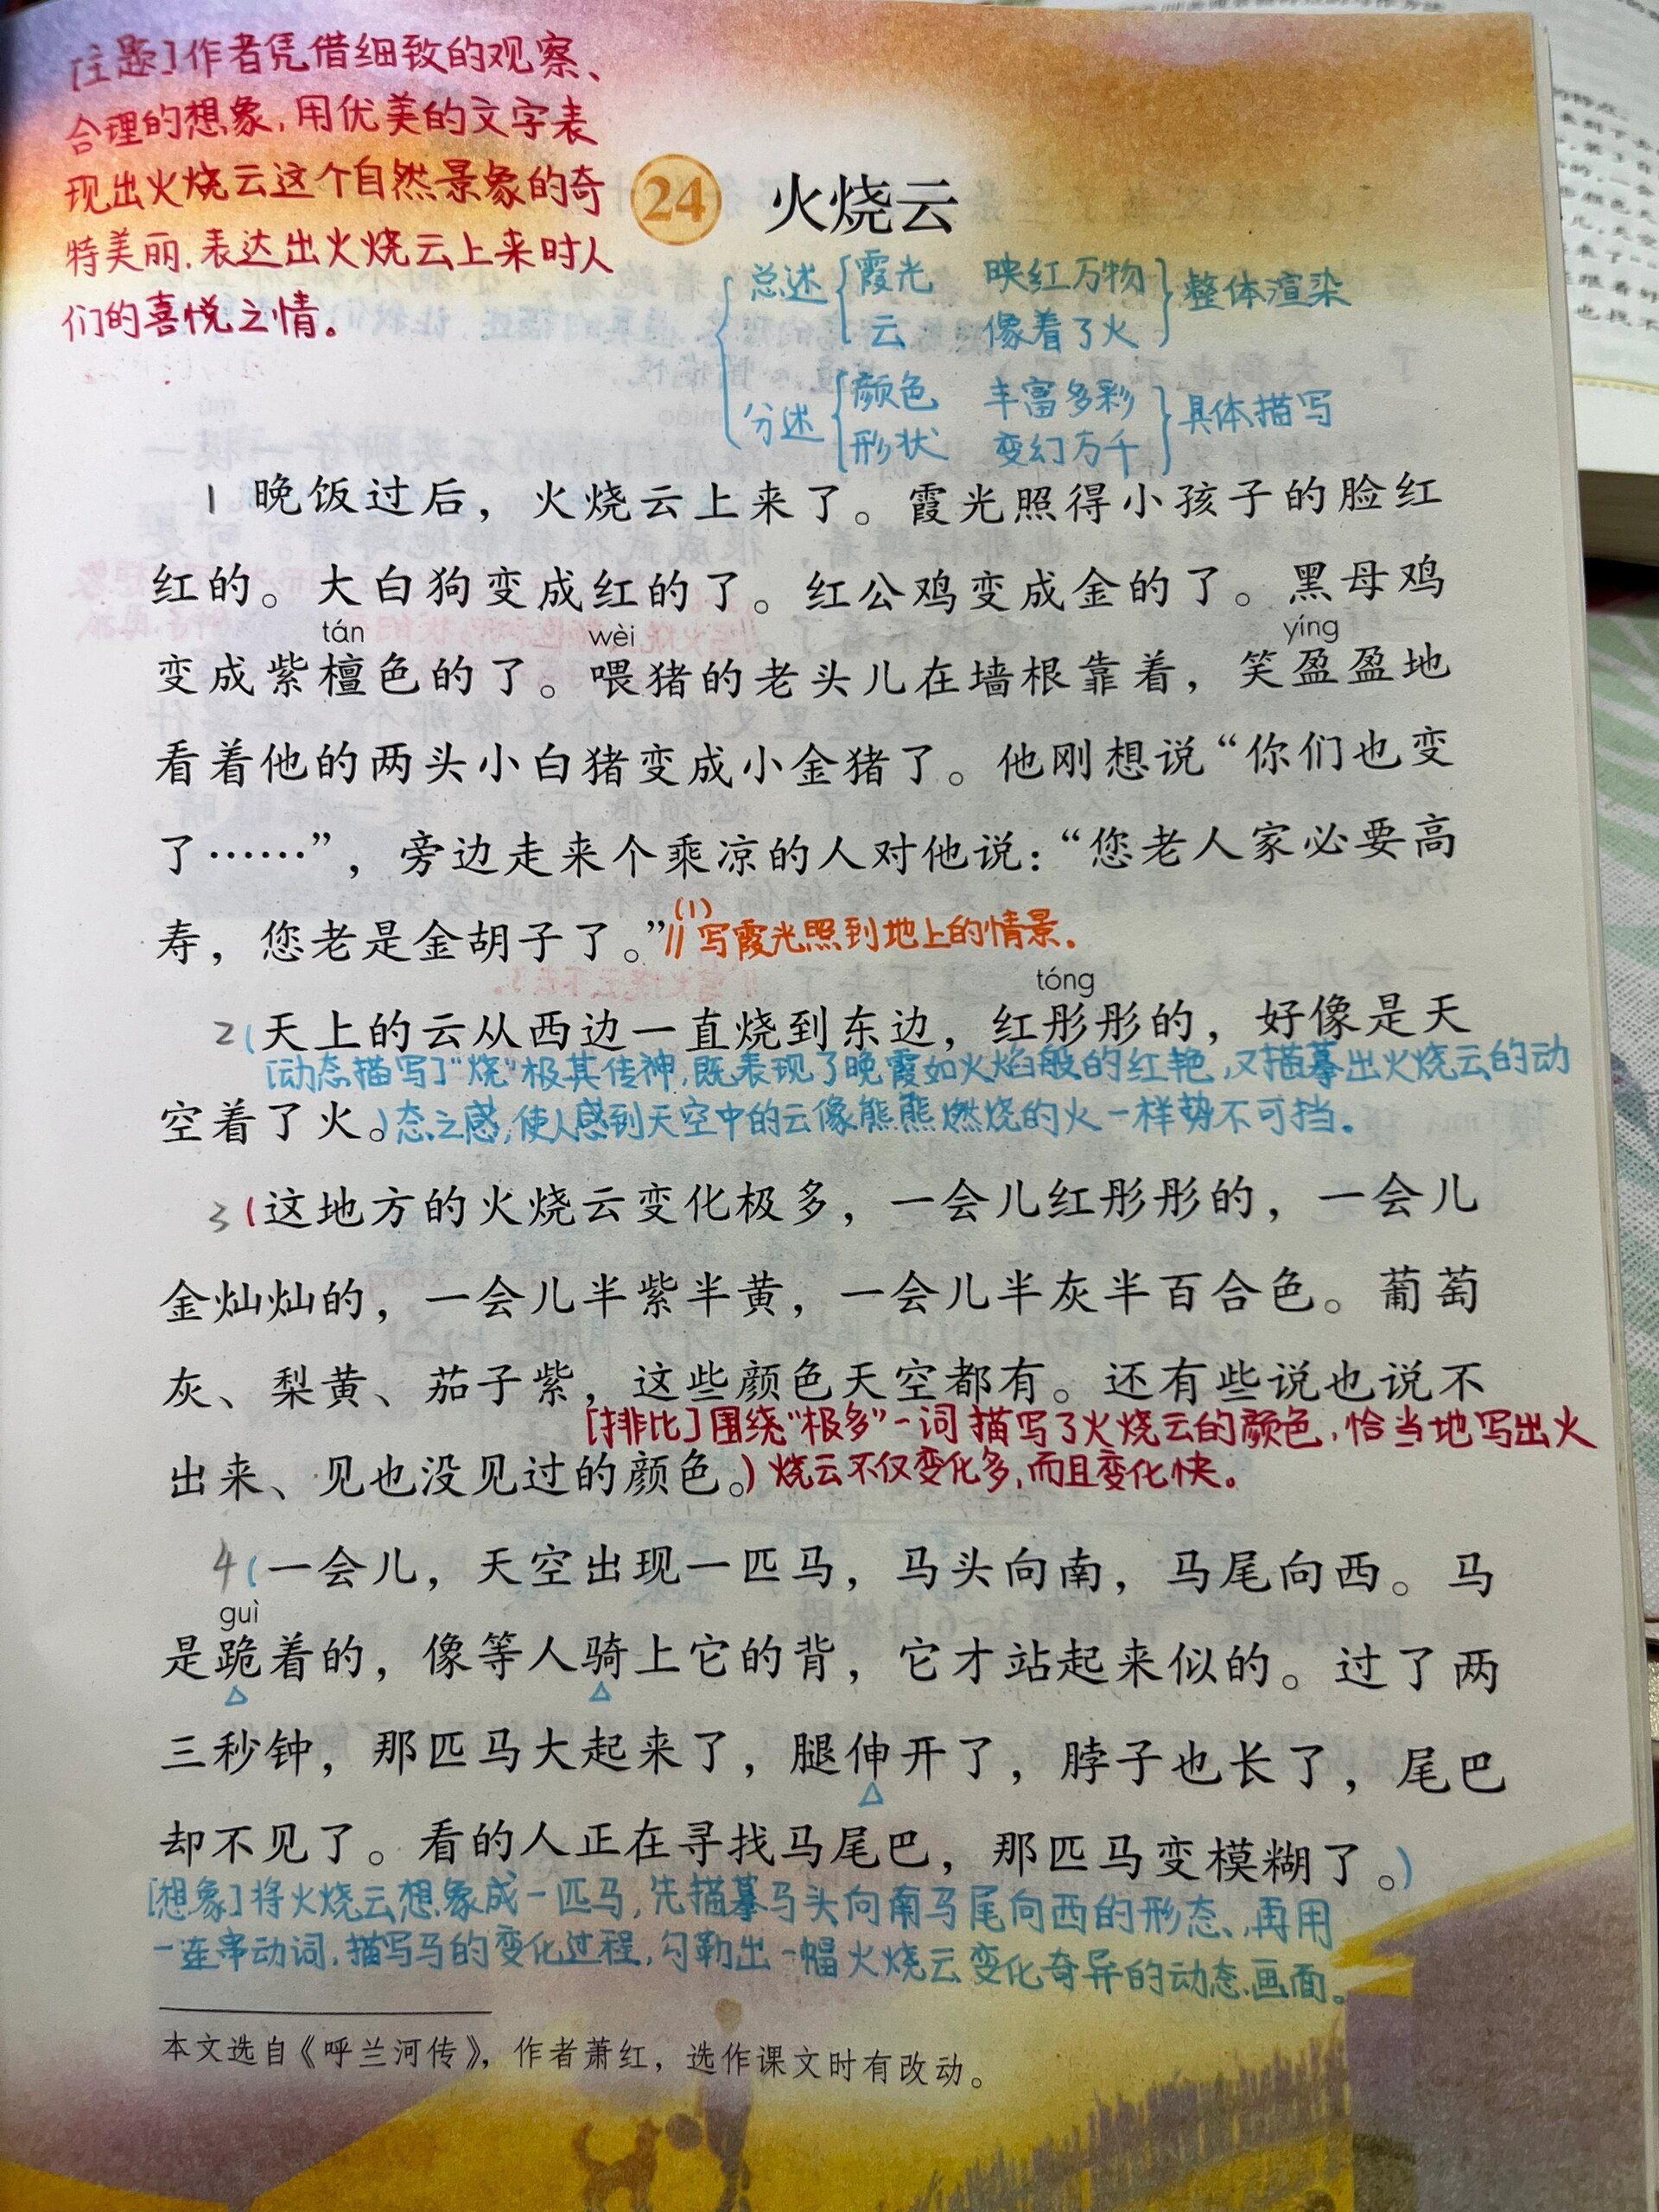 [主题]作者凭借细致的观察、
合理的想象，用优美的文字表
现出火烧云这个自然景象的奇
特美丽，表达出火烧云上来时人
们的喜悦之情。
24 火烧云
总述 霞光 映红万物 整体渲染
云 像着了火
分述 颜色 丰富多彩 具体描写
形状 变幻万千
1 晚饭过后，火烧云上来了。霞光照得小孩子的脸红
红的。大白狗变成红的了。红公鸡变成金的了。黑母鸡
tán wèi yíng
变成紫檀色的了。喂猪的老头儿在墙根靠着，笑盈盈地
看着他的两头小白猪变成小金猪了。他刚想说“你们也变
了……”，旁边走来个乘凉的人对他说：“您老人家必要高
寿，您老是金胡子了。”// (1)写霞光照到地上的情景.
tóng
2 (天上的云从西边一直烧到东边，红彤彤的，好像是天
[动态描写]“烧”极其传神，既表现了晚霞如火焰般的红艳，又描摹出火烧云的动
空着了火。)态之感，使人感到天空中的云像熊熊燃烧的火一样势不可挡。
3 (这地方的火烧云变化极多，一会儿红彤彤的，一会儿
金灿灿的，一会儿半紫半黄，一会儿半灰半百合色。葡萄
灰、梨黄、茄子紫，这些颜色天空都有。还有些说也说不
[排比]围绕“极多”一词描写了火烧云的颜色，恰当地写出火
出来、见也没见过的颜色。)烧云不仅变化多，而且变化快。
4 (一会儿，天空出现一匹马，马头向南，马尾向西。马
guì
是跪着的，像等人骑上它的背，它才站起来似的。过了两
三秒钟，那匹马大起来了，腿伸开了，脖子也长了，尾巴
却不见了。看的人正在寻找马尾巴，那匹马变模糊了。)
[想象]将火烧云想象成一匹马，先描摹马头向南马尾向西的形态，再用
一连串动词，描写马的变化过程，勾勒出一幅火烧云变化奇异的动态画面。
本文选自《呼兰河传》，作者萧红，选作课文时有改动。